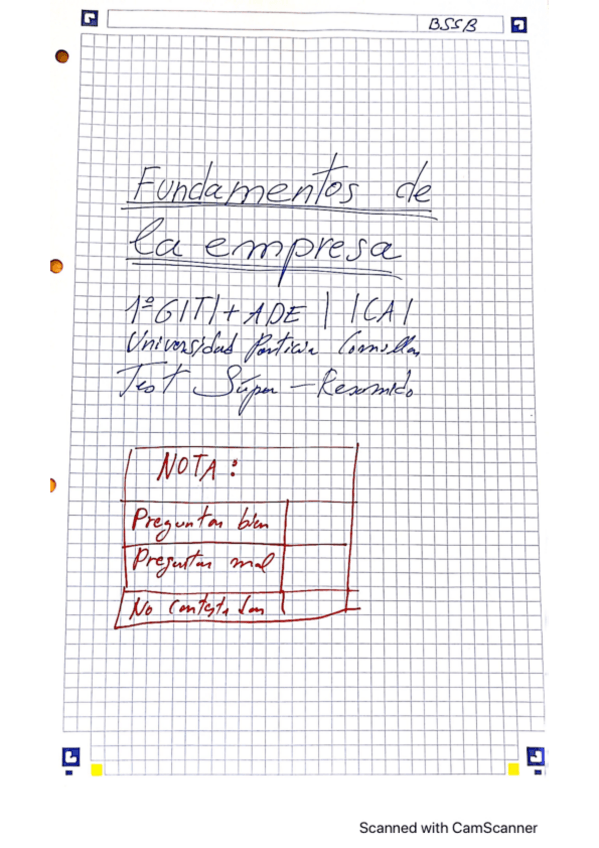 BSSB
Fundamentos de
la empresa
1º GITI + ADE | ICAI
Universidad Pontificia Comillas
Test Súper-Resumido
NOTA:
Preguntas bien
Preguntas mal
No contestadas
Scanned with CamScanner